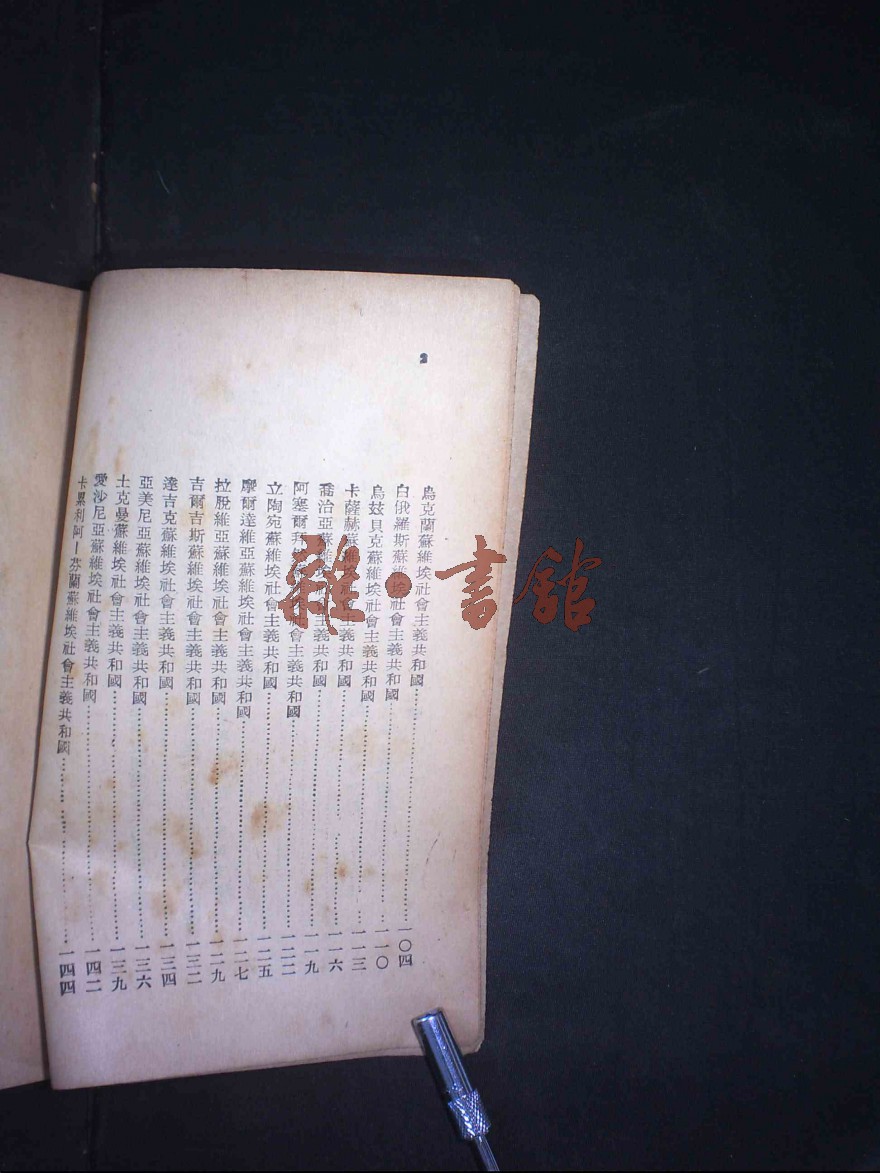 2
烏克蘭蘇維埃社會主義共和國……一〇四
白俄羅斯蘇維埃社會主義共和國……一一〇
烏玆貝克蘇維埃社會主義共和國……一一三
卡薩赫蘇維埃社會主義共和國……一一六
喬治亞蘇維埃社會主義共和國……一一九
阿塞爾蘇維埃社會主義共和國……一二二
立陶宛蘇維埃社會主義共和國……一二五
摩爾達維亞蘇維埃社會主義共和國……一二七
拉脫維亞蘇維埃社會主義共和國……一二九
吉爾吉斯蘇維埃社會主義共和國……一三二
達吉克蘇維埃社會主義共和國……一三四
亞美尼亞蘇維埃社會主義共和國……一三六
土克曼蘇維埃社會主義共和國……一三九
愛沙尼亞蘇維埃社會主義共和國……一四二
卡累利阿—芬蘭蘇維埃社會主義共和國……一四四
雜·書館